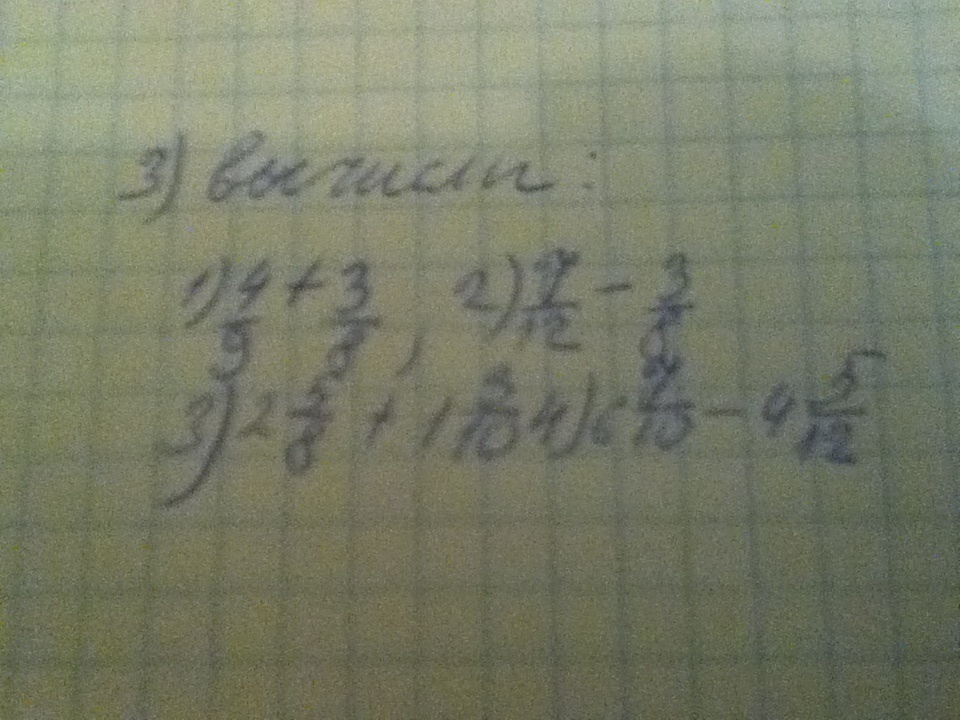 3) Вычисли:
1) 4/9 + 3/8, 2) 7/12 - 3/8
3) 2 5/8 + 1 3/10 4) 6 7/10 - 4 5/12